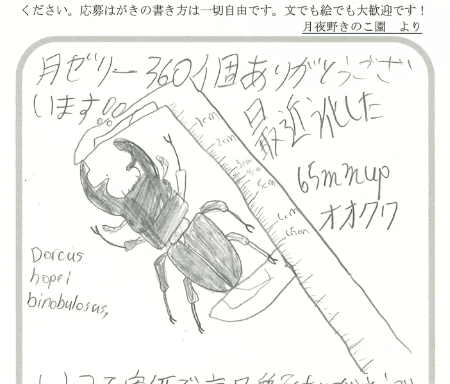 ください。応募はがきの書き方は一切自由です。文でも絵でも大歓迎です！
月夜野きのこ園　より
月ゼリー360個ありがとうござい
います
最近羽化した
65mmup
オオクワ
1cm
2cm
3cm
4cm
5cm
6cm
6.5cm
Dorcus
hopei
binobulosus,